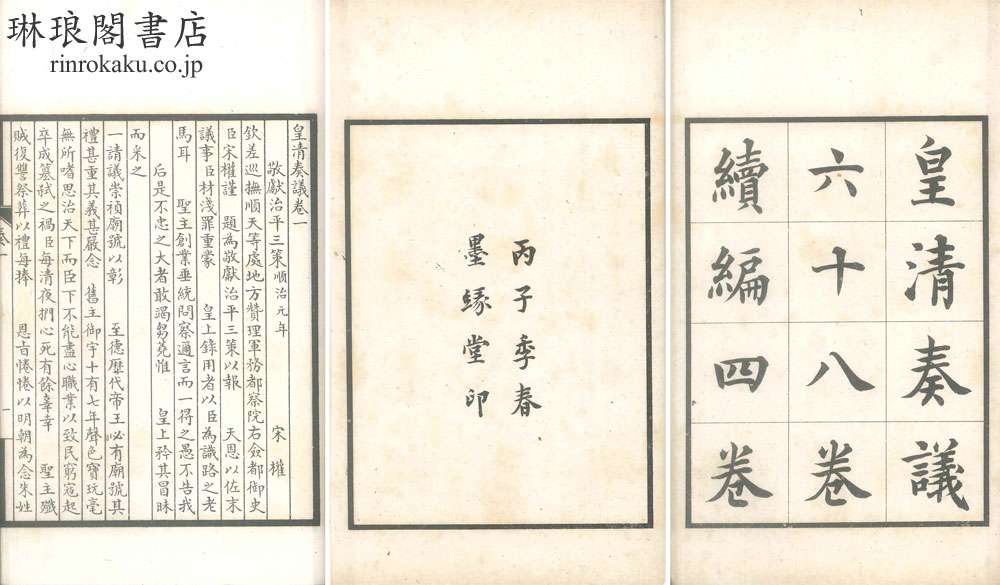 琳琅閣書店
rinrokaku.co.jp
皇清奏議
六十八卷
續編四卷
丙子季春
墨緣堂印
皇清奏議卷一
敬獻治平三策順治元年 宋權
欽差巡撫順天等處地方贊理軍務都察院右僉都御史
臣宋權謹 題為敬獻治平三策以報 天恩以佐末
議事臣材淺罪重蒙 皇上錄用者以臣為識路之老
馬耳 聖主創業垂統問察邇言而一得之愚不告我
后是不忠之大者敢竭芻蕘惟 皇上矜其冒昧
而采之
一請議崇禎廟號以彰 至德歷代帝王必有廟號其
禮甚重其義甚嚴念 舊主御宇十有七年聲色寶玩毫
無所嗜思治天下而臣下不能盡心職業以致民窮寇起
卒成篡弒之禍臣每清夜捫心死有餘辜幸 聖主殲
賊復讐祭葬以禮每捧 恩旨惓惓以明朝為念朱姓
一